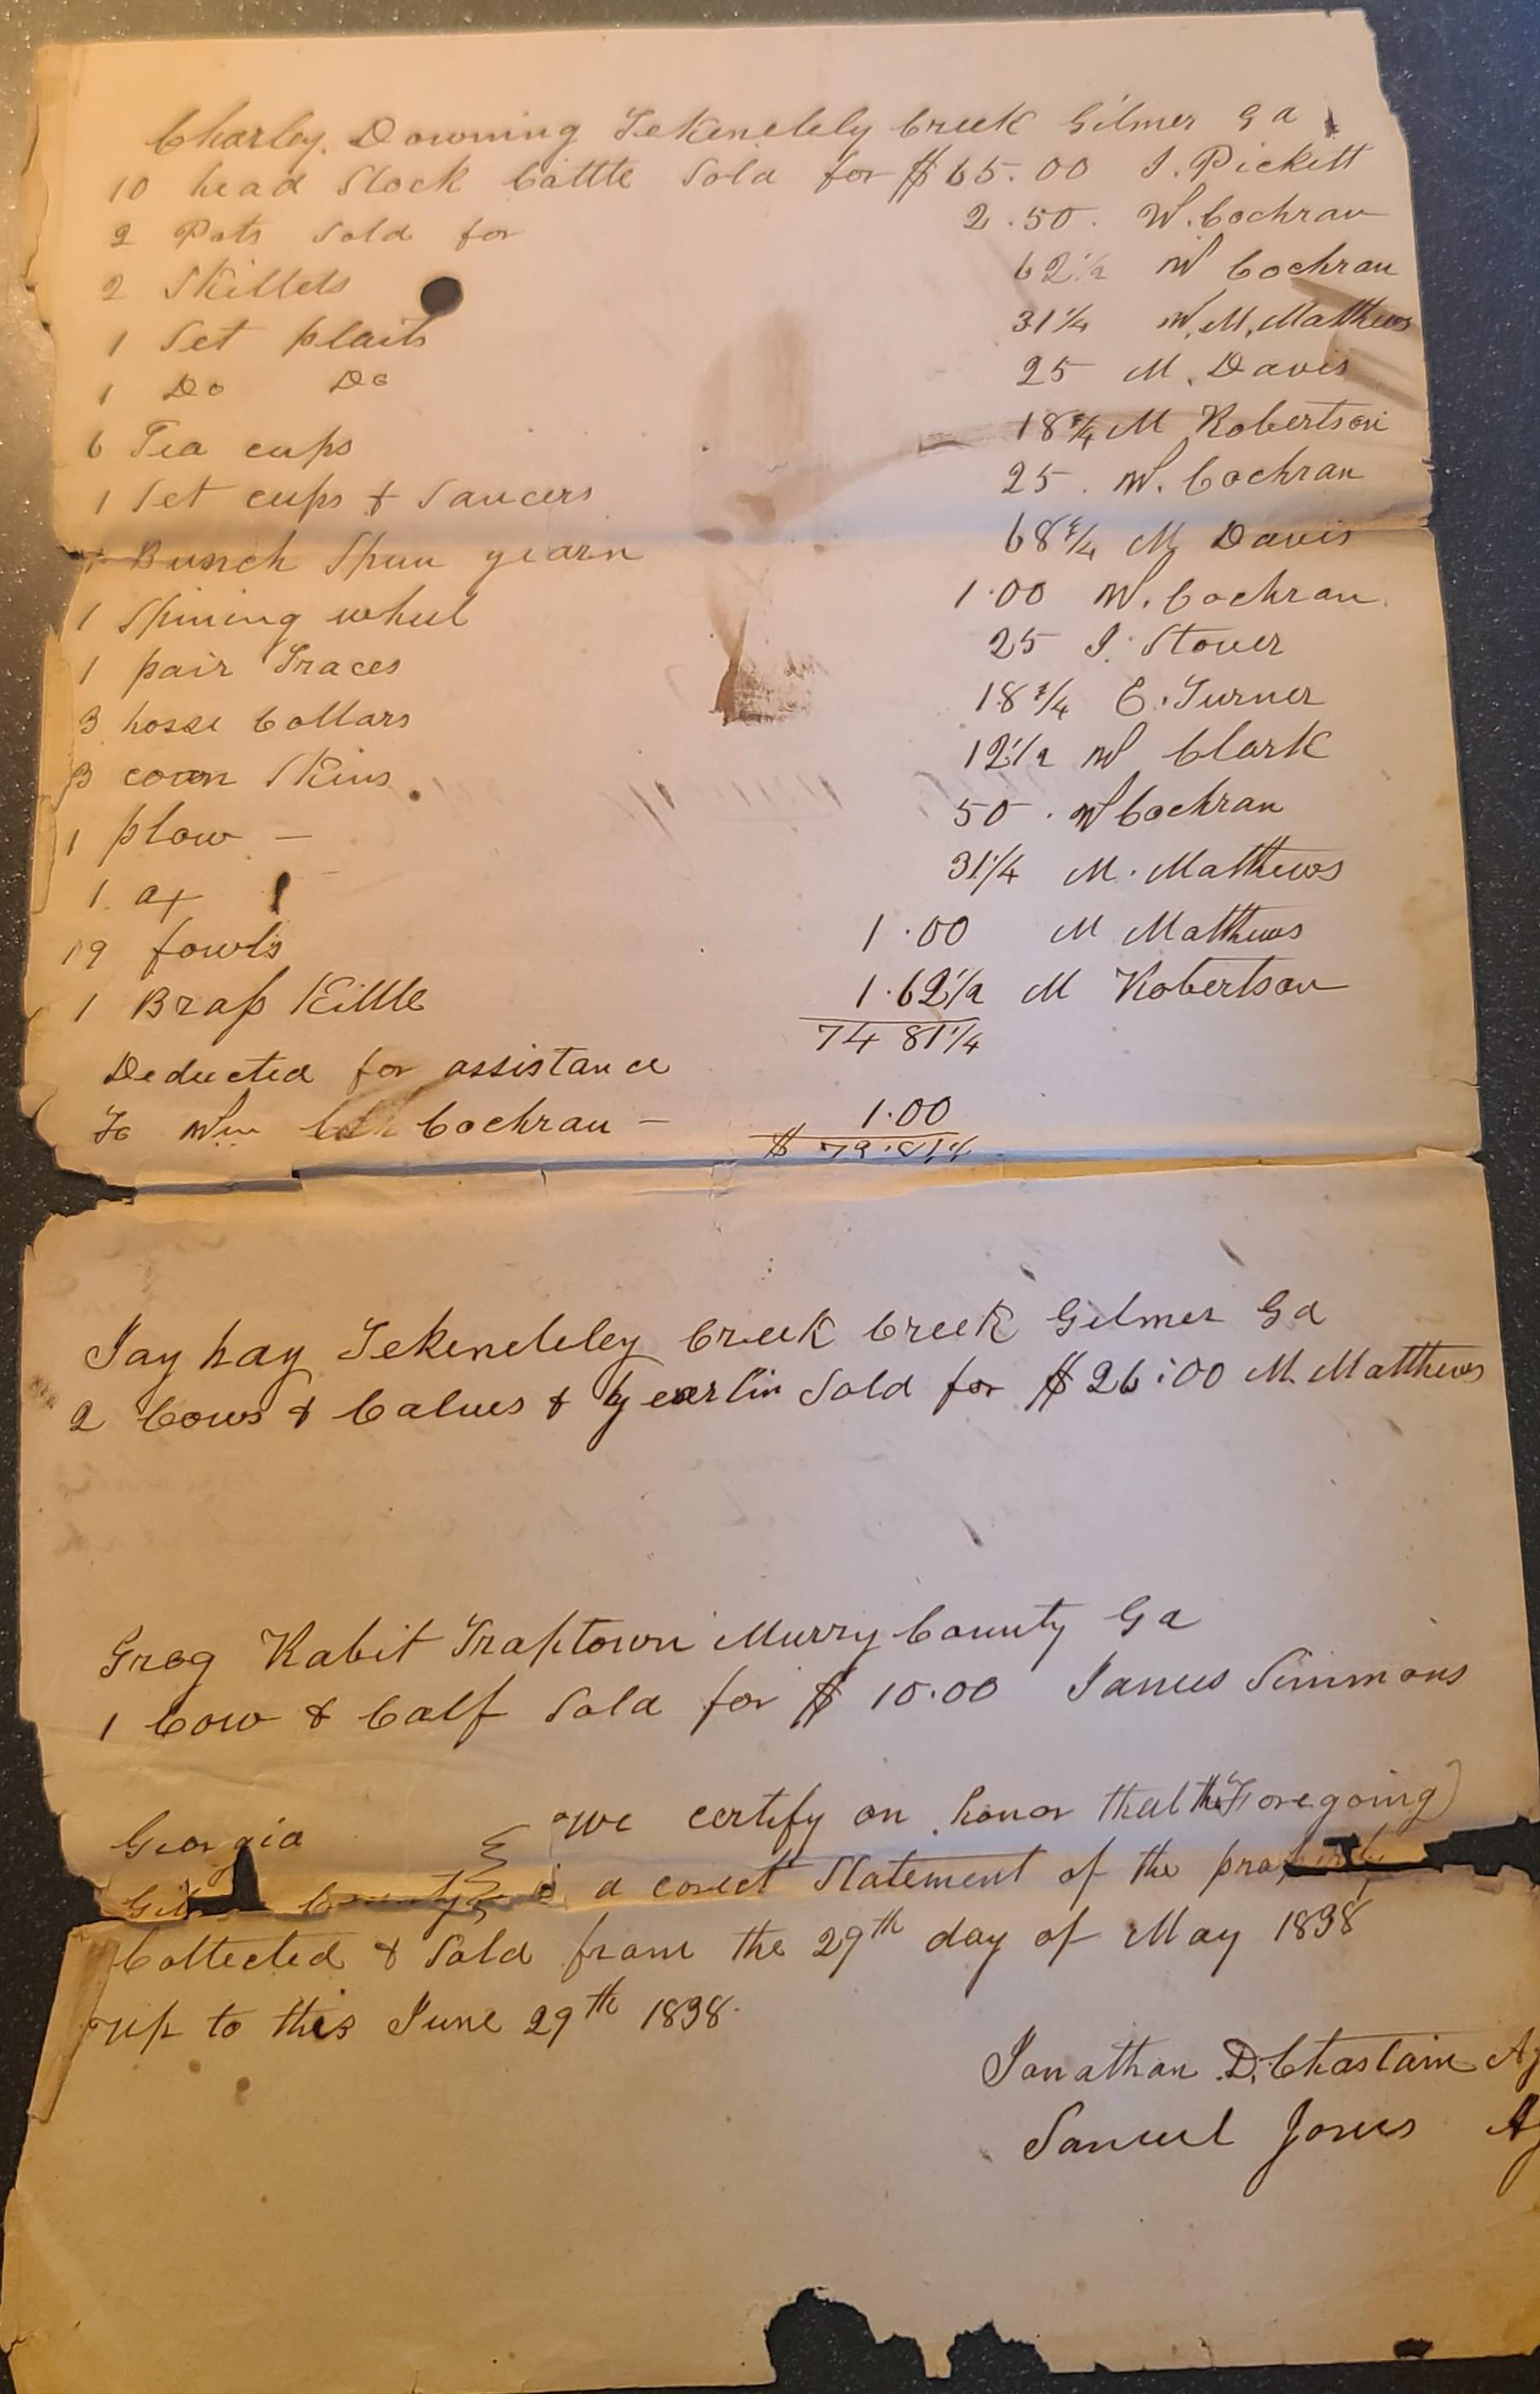 Charley Downing Tekenelely Creek Gilmer Ga
10 head Stock Cattle Sold for $65.00 J. Pickett
2 Pots Sold for 2.50. W. Cochran
2 Skillets 62 1/2 W Cochran
1 Set plaits 31 1/4 W. M. Matthews
1 Do Do 25 M. Davis
6 Tea cups 18 3/4 M Robertson
1 Set cups & Saucers 25. W. Cochran
1 Bunch Spun yearn 68 3/4 M Davis
1 Spining wheel 1.00 W. Cochran
1 pair Traces 25 J. Stover
3 hosse Collars 18 3/4 E. Turner
3 coon Skins 12 1/2 W Clark
1 plow — 50. W Cochran
1. ax 31 1/4 M. Matthews
19 fowls 1.00 M Matthews
1 Brass Kittle 1.62 1/2 M Robertson
74 81 1/4
Deducted for assistance
To Wm Cochran — 1.00
$ 73.81 1/4
Jay hay Tekeneleley Creek Creek Gilmer Ga
2 Cows & Calves & yearlin Sold for $26.00 M. Matthews
Grog Rabit Traptown Murry County Ga
1 Cow & Calf Sold for $ 10.00 James Simmons
Georgia We certify on honor that the Foregoing
Gilmer County is a corect Statement of the property
Collected & Sold from the 29th day of May 1838
up to this June 29th 1838.
Jonathan D. Chastain Ag
Samuel Jones Ag